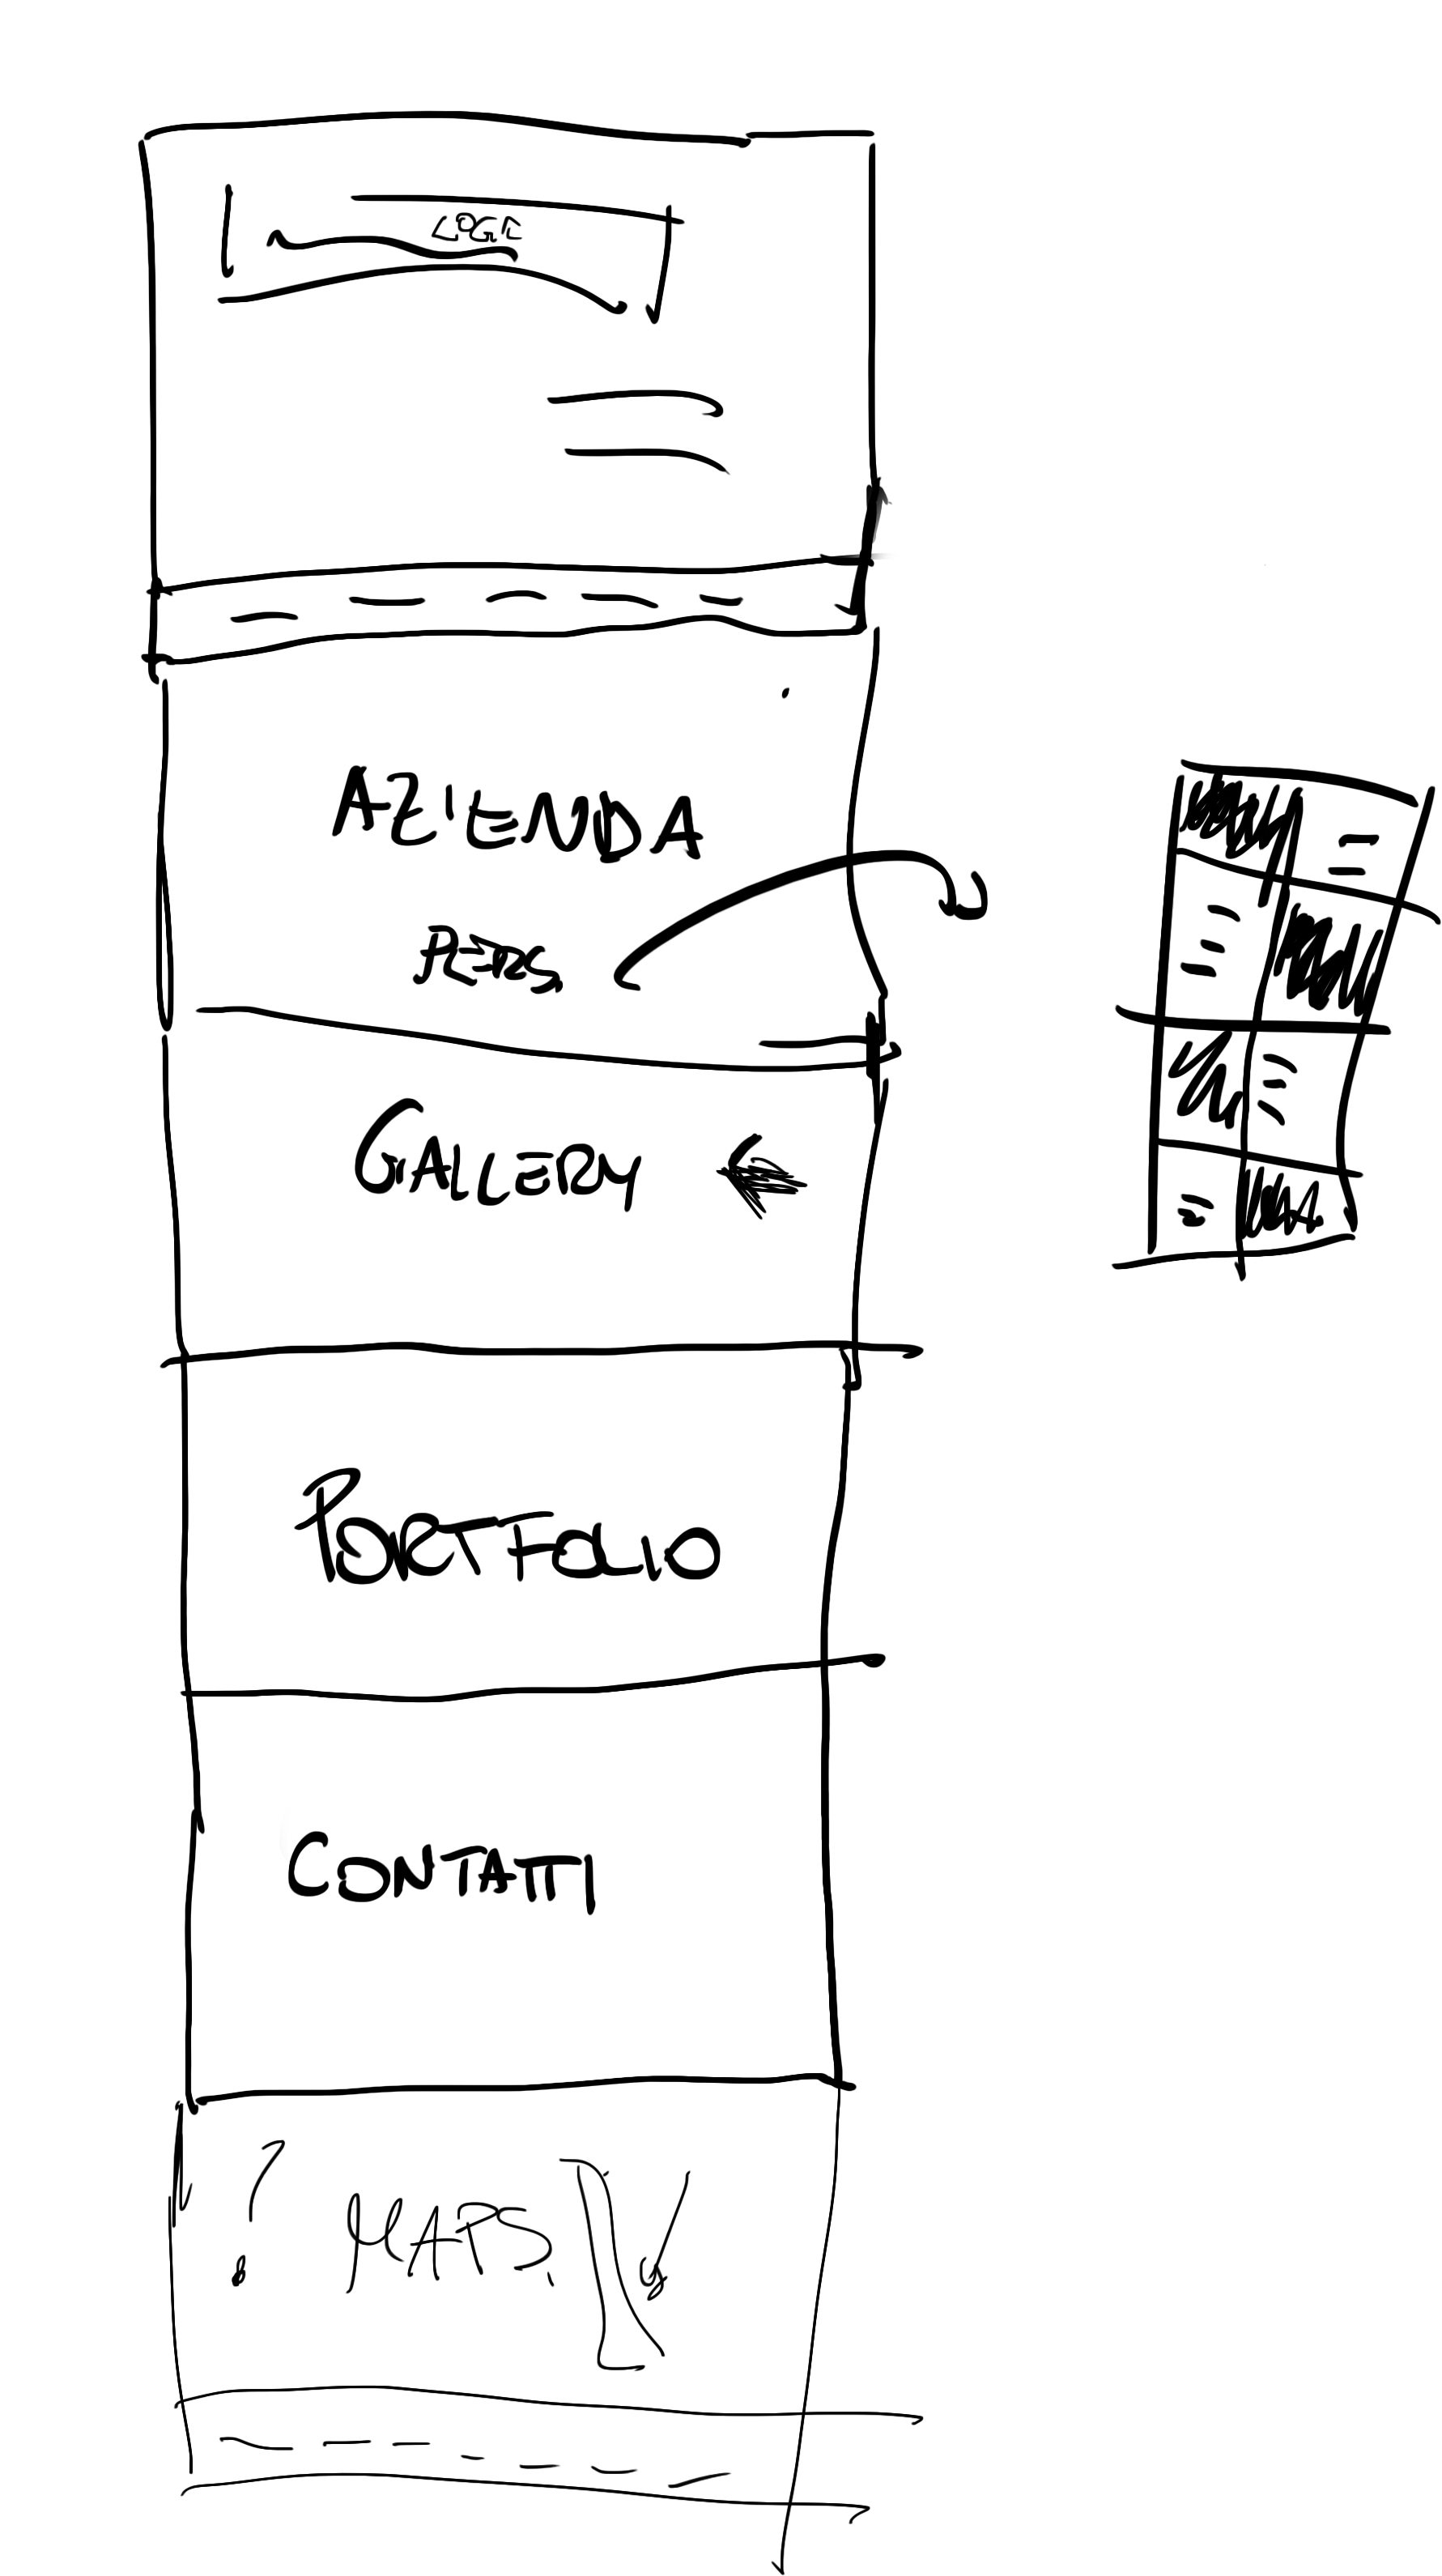 LOGO
AZIENDA
PERS.
GALLERY
PORTFOLIO
CONTATTI
? MAPS.